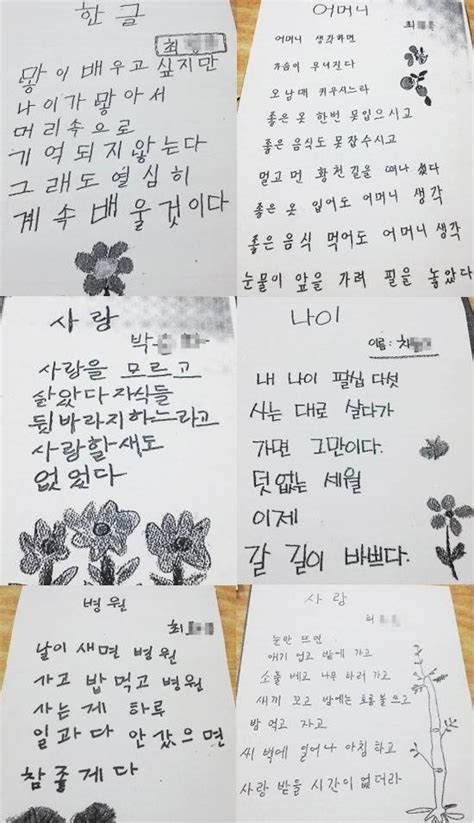 한글
최
많이 배우고 싶지만
나이가 많아서
머리속으로
기억되지않는다
그래도 열심히
계속 배울것이다
어머니
최
어머니 생각하면
가슴이 무너진다
오남매 키우시느라
좋은 옷 한번 못입으시고
좋은 음식도 못잡수시고
멀고먼 황천길을 떠나셨다
좋은 옷 입어도 어머니 생각
좋은 음식 먹어도 어머니 생각
눈물이 앞을 가려 필을 놓았다
사랑
박
사랑을 모르고
삶았다 자식들
뒷바라지하느라고
사랑할새도
없었다
나이
이름: 차
내 나이 팔십 다섯
사는 대로 살다가
가면 그만이다.
덧없는 세월
이제
갈 길이 바쁘다.
병원
최
날이 새면 병원
가고 밥먹고 병원
사는게 하루
일과다 안갔으면
참좋게다
사랑
눈만 뜨면
애기 업고 밭에 가고
소풀 베고 나무 하러 가고
새끼 꼬고 밤에는 호롱불 쓰고
밥 먹고 자고
씨벅에 일어나 아침 하고
사랑 받을 시간이 없더라